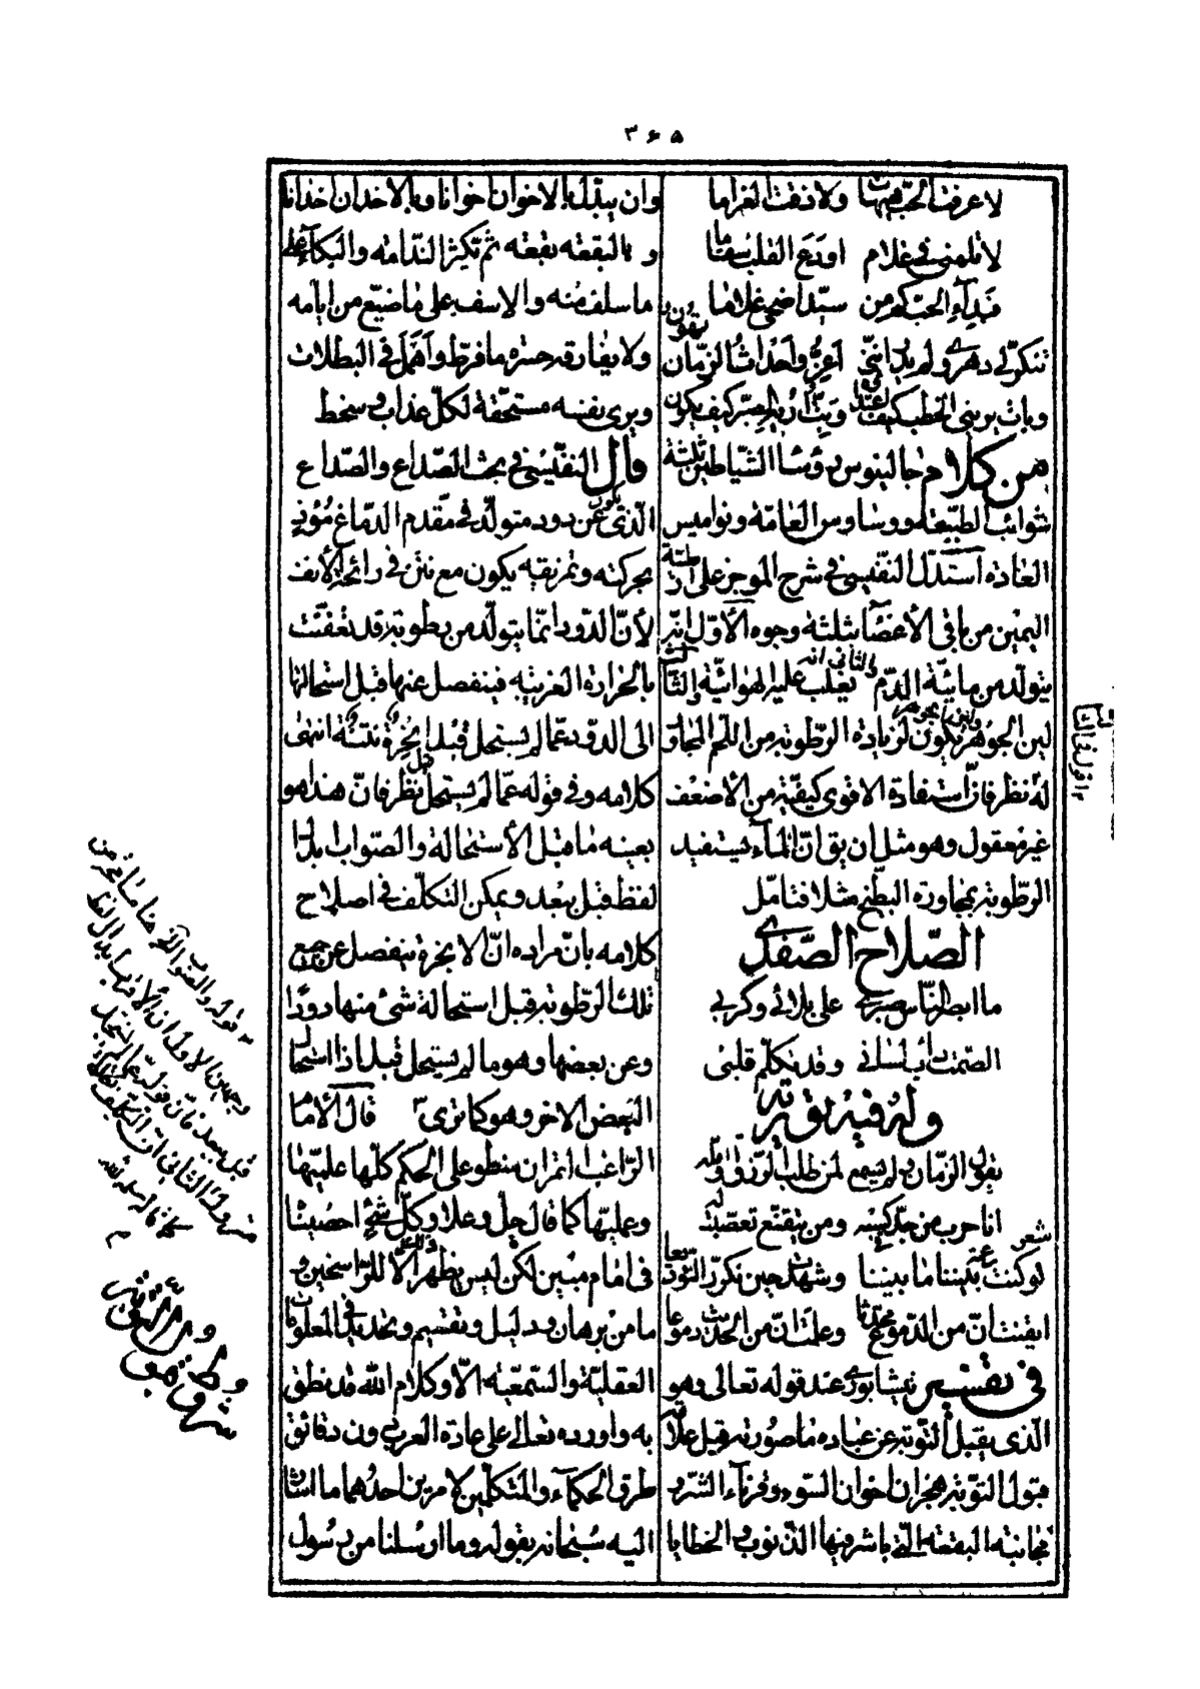 ۳۶۵
لا عرفت الحب هيهات ولا ذقت الغراما
لا تلمنى فى غلام اودع القلب سقاما
فبداء الحب كم من سيد اضحى غلاما
تنكر لى دهرى ولم يدر اننى اعز واحداث الزمان تهون
وبات يرينى الخطب كيف اعتداؤه وبت اريه الصبر كيف يكون
من كلام جالينوس رؤسا الشياطين ثلثة
شوائب الطبيعة ووساوس العامة ونواميس
العادة استدل النفيسى فى شرح الموجز على
اليمين من باقى الأعضا بثلثة وجوه الأول انه
يتولد من مائية الدم والثانى انه يغلب عليه الهوائية والثالث
لين الجوهر يكون لزيادة الرطوبة من اللحم المجاور
له نظر فان استفادة الاقوى كيفية من الأضعف
غير معقول وهو مثل ان يق ان الماء يستفيد
الرطوبة بمجاورة البطيخ مثلا فتامل
الصلاح الصفدى
ما ابطر الناس صبرى على بلائى وكربى
الصمت دأب لسانى وقد تكلم قلبى
وله فيه تورية
يقول الزمان ولم يسمع لمن طلب الرزق
انا حرب من جد كسبه ومن يقتنع تعصبت له
شعر
لو كنت بيننا ما بيننا وشهدت حين نكرر التوديعا
ايقنت ان من الدموع محدثا وعلمت ان من الحديث دموعا
فى تفسير نيشابورى عند قوله تعالى وهو
الذى يقبل التوبة عن عباده ما صورته قيل علامة
قبول التوبة هجران اخوان السوء وقرناء الشر و
مجانبة البقعة التى باشر فيها الذنوب والخطايا
وان يبدل بالاخوان اخوانا وبالاخدان اخدانا
وبالبقعة بقعة ثم تكثر الندامة والبكاء على
ما سلف منه والاسف على ما ضيع من ايامه
ولا يفارقه حسرة ما فرط واهمل فى البطلات
ويرى نفسه مستحقة لكل عذاب وسخط
قال النفيسى فى بحث الصداع والصداع
الذى يكون عن دود متولد فى مقدم الدماغ مؤذ
بحركته وتمزيقه يكون مع نتن فى رائحة الأنف
لأن الدود انما يتولد من رطوبة قد تعفنت
بالحرارة الغريبة فينفصل عنها قبل استحالتها
الى الدود عما لم يستحل قبل ابخرة نتنة انتهى
كلامه وفى قوله عما لم يستحل قبل نظر فان هذا هو
بعينه ما قبل الأستحالة والصواب بدل
لفظ قبل بعد ويمكن التكلف فى اصلاح
كلامه بان مراده ان الابخرة تنفصل عن جميع
تلك الرطوبة قبل استحالة شئ منها دودا
وعن بعضها وهو ما لم يستحل قبل اذا استحال
البعض الاخر وهو كما ترى قال الأمام
الراغب القرآن منطو على الحكم كلها علميتها
وعمليتها كما قال جل وعلا وكل شئ احصيناه
فى امام مبين لكن ليس يظهر ذلك الا للراسخين و
ما من برهان ودليل وتقسيم وتحديد فى المعلومات
العقلية والسمعية الا وكلام الله قد نطق
به واورده تعالى على عادة العرب دون دقائق
طرق الحكماء والمتكلمين لأمرين احدهما ما اشار
اليه سبحانه بقوله وما ارسلنا من رسول